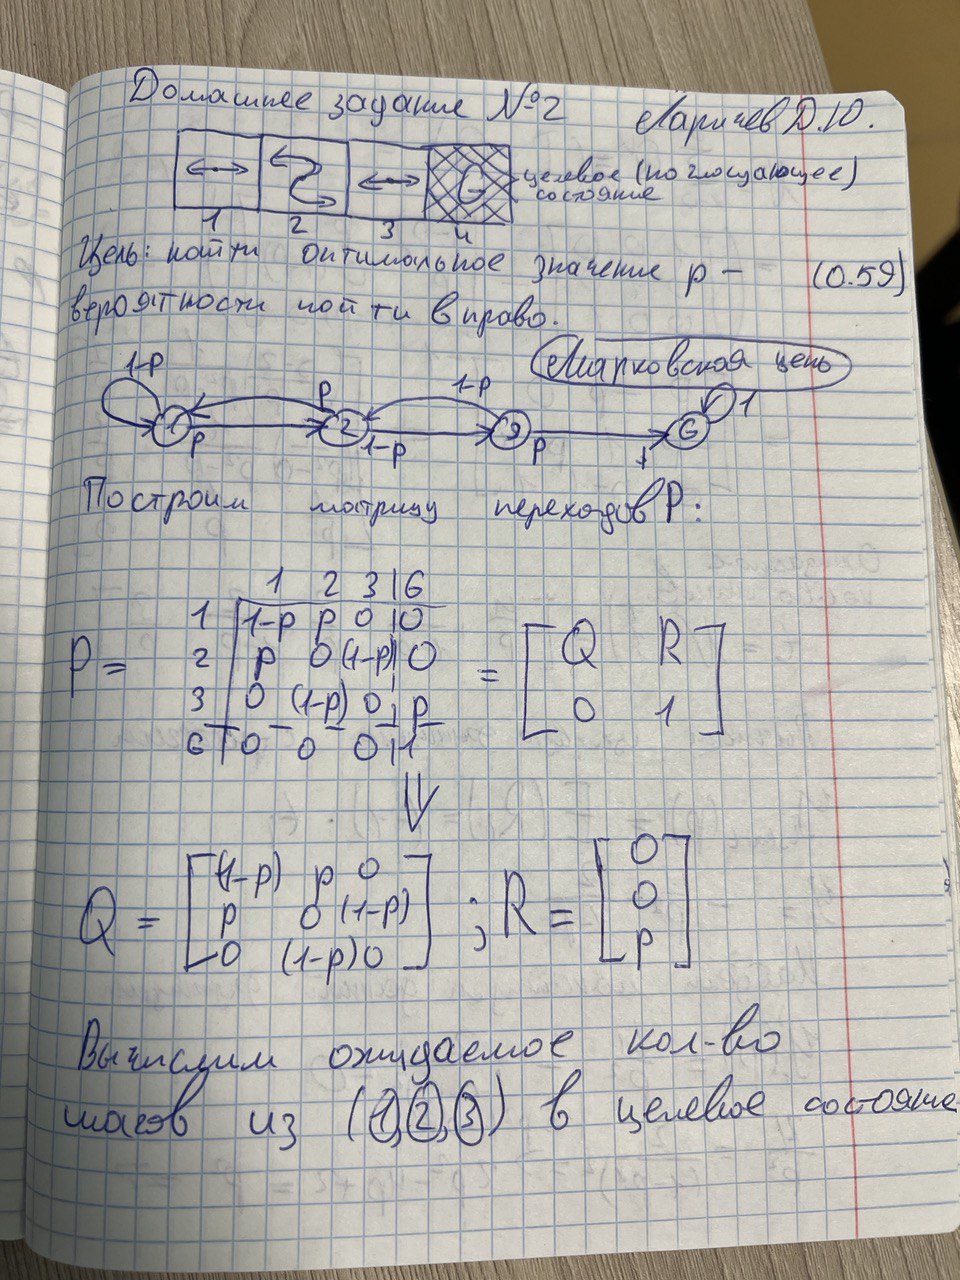 Домашнее задание №2 Ларичев Д.Ю.
G целевое (поглощающее)
состояние
1 2 3 4
Цель: найти оптимальное значение p – (0.59)
вероятности пойти вправо.
Марковская цепь
1-p p 1-p 1
1 2 3 G
p 1-p p
Построим матрицу переходов P:
1 2 3 | G
1 1-p p 0 | 0
P = 2 p 0 (1-p) | 0 = [ Q R
3 0 (1-p) 0 | p 0 1 ]
G 0 0 0 | 1
⇓
(1-p) p 0 0
Q = [ p 0 (1-p) ] ; R = [ 0 ]
0 (1-p) 0 p
Вычислим ожидаемое кол-во
шагов из (1, 2, 3) в целевое состояние